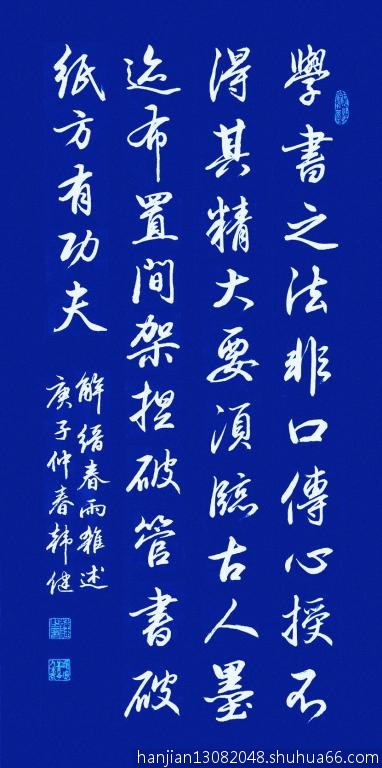 學書之法非口傳心授不
得其精大要須臨古人墨
迹布置間架担破管書破
紙方有功夫
解縉春雨雜述
庚子仲春韓健
hanjian13082048.shuhua66.com